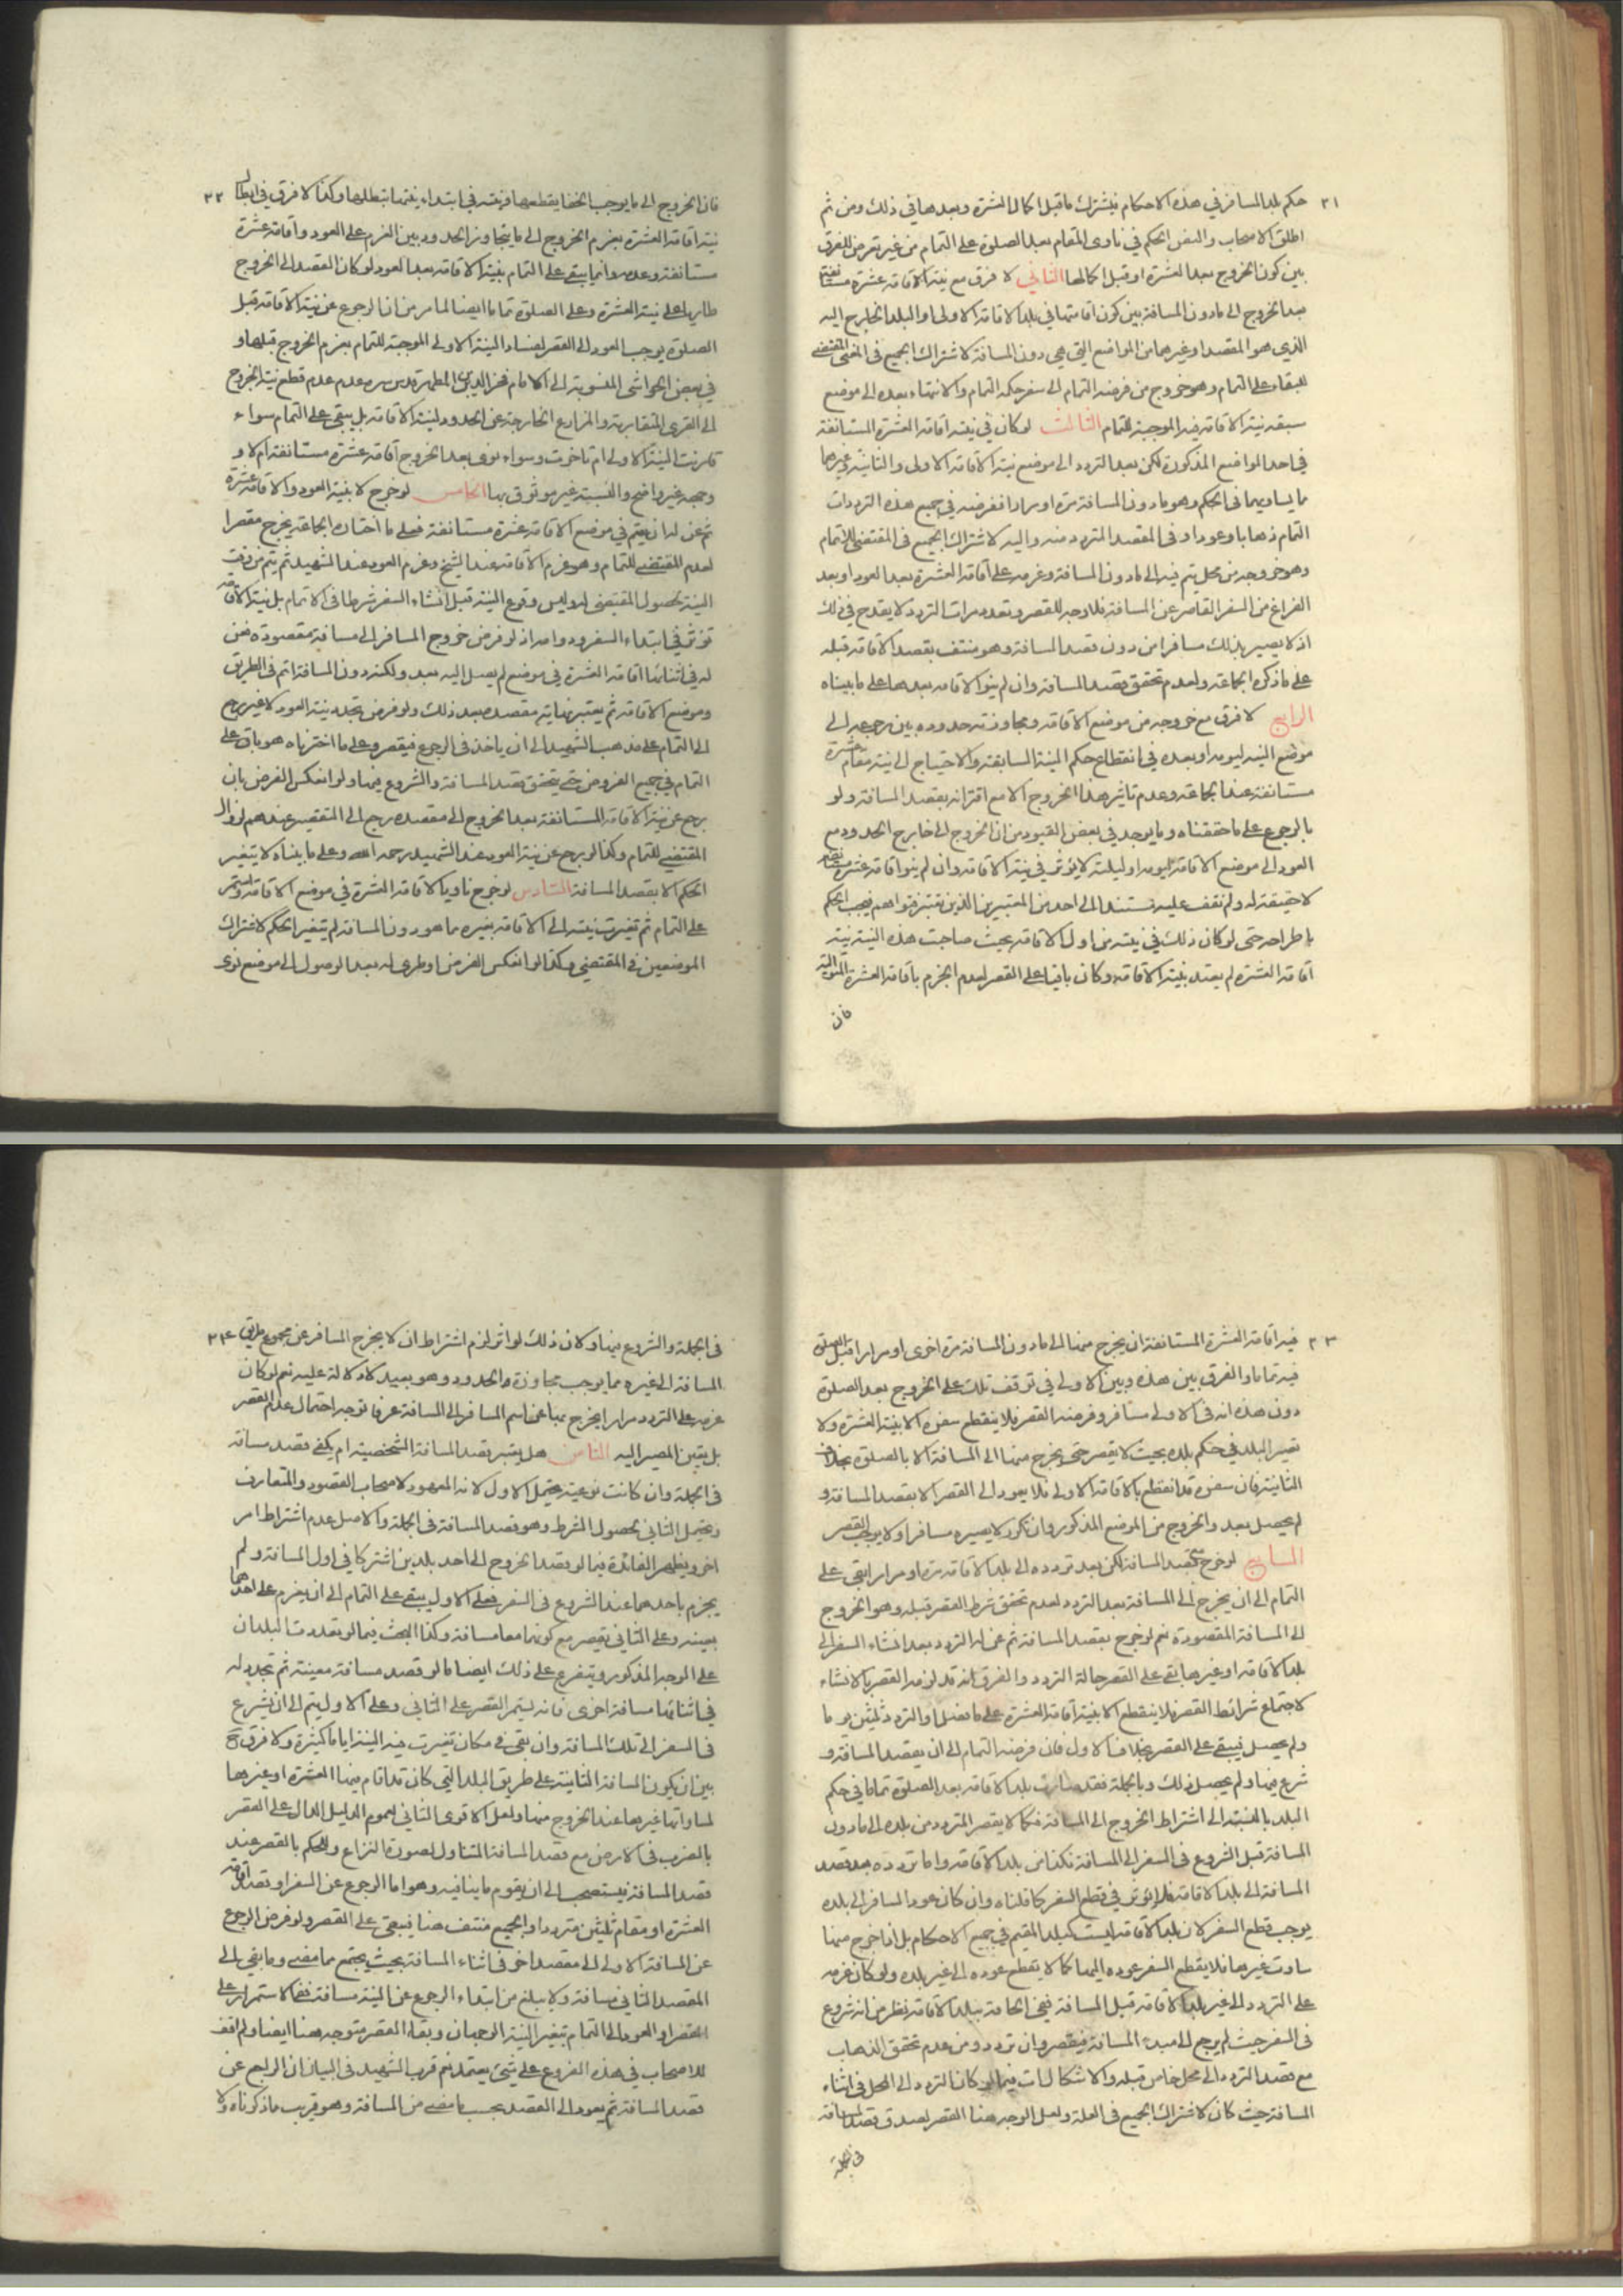 ٢١
حكم بلد المسافر في هذه الاحكام فيشترك ما قبل اكمال العشرة وبعدها في ذلك ومن ثم
اطلق الاصحاب والنص الحكم في ناوى المقام بعد الصلوة على التمام من غير تعرض للفرق
بين كون الخروج بعد العشرة او قبل اكمالها الثاني لا فرق مع نية الاقامة عشرة مستانفة
بعد الخروج الى مادون المسافة بين كون اقامتها في بلد الاقامة الاولى او البلد الخارج اليه
الذي هو المقصد او غيرهما من المواضع التي هي دون المسافة لاشتراك الجميع في المعنى المقتضى
للبقاء على التمام وهو خروج من فرضه التمام الى سفر حكمه التمام والانتهاء بعده الى موضع
سبقه نية الاقامة فيه الموجبة للتمام الثالث لو كان في نيته اقامة العشرة المستانفة
في احد المواضع المذكورة لكن بعد التردد الى موضع نية الاقامة الاولى والثانية وغيرهما
ما يساويهما في الحكم وهو مادون المسافة مرة او مرارا ففرضه في جميع هذه الترددات
التمام ذهابا وعودا وفي المقصد المتردد منه واليه لاشتراك الجميع في المقتضى للاتمام
وهو خروجه من محل يتم فيه الى مادون المسافة وعزمه على اقامة العشرة بعد العود او بعد
الفراغ من السفر القاصر عن المسافة فلا وجه للقصر وتعدد مرات التردد لا يقدح في ذلك
اذ لا يصير بذلك مسافرا من دون قصد المسافة وهو منتف بقصد الاقامة قبله
على ما ذكره الجماعة ولعدم تحقق قصد المسافة وان لم ينو الاقامة بعدها على ما بيناه
الرابع لا فرق مع خروجه من موضع الاقامة ومجاوزته حدوده بين رجوعه الى
موضع النية ليومه او بعده في انقطاع حكم النية السابقة والاحتياج الى نية مقام عشرة
مستانفة عند الجماعة وعدم تاثير هذا الخروج الا مع اقترانه بقصد المسافة ولو
بالرجوع على ما حققناه وما يوجد في بعض القيود من ان الخروج الى خارج الحدود مع
العود الى موضع الاقامة ليومه او ليلته لا يؤثر في نية الاقامة وان لم ينو اقامة عشرة مستانفة
لا حقيقة له ولم نقف عليه مستندا الى احد من المعتبرين الذين تعتبر فتواهم فيجب الحكم
باطراحه حتى لو كان ذلك في نيته من اول الاقامة بحيث صاحبت هذه النية نية
اقامة العشرة لم يعتد بنية الاقامة وكان باقيا على القصر لعدم الجزم باقامة العشرة المتوالية
فان
٢٢
فان الخروج الى ما يوجب الخفا يقطعها ونيته في ابتداء نيتها تبطلها وكذا لا فرق في ابطال
نية اقامة العشرة بعزم الخروج الى ما يتجاوز الحدود بين العزم على العود واقامة عشرة
مستانفة وعدمه وانما يبقى على التمام بنية الاقامة بعد العود لو كان القصد الى الخروج
طاريا على نية العشرة وعلى الصلوة تماما ايضا لما مر من ان الرجوع عن نية الاقامة قبل
الصلوة يوجب العود الى القصر لفساد النية الاولى الموجبة للتمام بعزم الخروج قبلها و
في بعض الحواشي المنسوبة الى الامام فخر الدين بن المطهر قدس سره عدم عدم قطع نية الخروج
الى القرى المتقاربة والمزارع الخارجة عن الحدود لنية الاقامة بل يبقى على التمام سواء
قارنت النية الاولى ام تاخرت وسواء نوى بعد الخروج اقامة عشرة مستانفة ام لا و
وجهه غير واضح والنسبة غير موثوق بها الخامس لو خرج لا بنية العود والاقامة عشرة
ثم عن له ان يقيم في موضع الاقامة عشرة مستانفة فعلى ما اختاره الجماعة يخرج مقصرا
لعدم المقتضى للتمام وهو عزم الاقامة عند الشيخ وعزم العود عند الشهيد ثم يتم من وقت
النية لحصول المقتضى له وليس وقوع النية قبل انشاء السفر شرطا في الاتمام بل نية الاقامة
تؤثر في ابتداء السفر ودوامه اذ لو فرض خروج المسافر الى مسافة مقصودة فعن
له في اثنائها اقامة العشرة في موضع لم يصل اليه بعد ولكنه دون المسافة اتم في الطريق
وموضع الاقامة ثم يعتبر نهاية مقصده بعد ذلك ولو فرض تجدد نية العود لا غير رجع
الى التمام على مذهب الشهيد الى ان ياخذ في الرجوع فيقصر وعلى ما اخترناه هو باق على
التمام في جميع الفروض حتى يتحقق قصد المسافة والشروع فيها ولو انعكس الفرض بان
رجع عن نية الاقامة المستانفة بعد الخروج الى مقصده رجع الى التقصير عندهم لزوال
المقتضى للتمام وكذا لو رجع عن نية العود عند الشهيد رحمه الله وعلى ما بيناه لا يتغير
الحكم الا بقصد المسافة السادس لو خرج ناويا لاقامة العشرة في موضع الاقامة واستمر
على التمام ثم تغيرت نيته الى الاقامة بغيره مما هو دون المسافة لم يتغير الحكم لاشتراك
الموضعين في المقتضى وكذا لو انعكس الفرض او طرى له بعد الوصول الى موضع نوى
٢٣
فيه اقامة العشرة المستانفة ان يخرج منها الى مادون المسافة مرة اخرى او مرارا قبل الصلوة
فيه تماما والفرق بين هذه وبين الاولى في توقف تلك على الخروج بعد الصلوة
دون هذه انه في الاولى مسافر وفرضه القصر فلا ينقطع سفره الا بنية العشرة ولا
تصير البلد في حكم بلده بحيث لا يقصر حتى يخرج منها الى المسافة الا بالصلوة بخلاف
الثانية فان سفره قد انقطع بالاقامة الاولى فلا يعود الى القصر الا بقصد المسافة و
لم يحصل بعد والخروج من الموضع المذكور وان تكرر لا يصيره مسافرا ولا يوجب القصر
السابع لو خرج بقصد المسافة لكن بعد تردده الى بلد الاقامة مرة او مرارا بقي على
التمام الى ان يخرج الى المسافة بعد التردد لعدم تحقق شرط القصر قبله وهو الخروج
الى المسافة المقصودة نعم لو خرج بقصد المسافة ثم عن له التردد بعد انشاء السفر الى
بلد الاقامة او غيرها بقي على القصر حالة التردد والفرق انه قد لزمه القصر بالانشاء
لاجتماع شرائط القصر فلا ينقطع الا بنية اقامة العشرة على ما فصل او التردد ثلثين يوما
ولم يحصل فيبقى على القصر بخلاف الاول فان فرضه التمام الى ان يقصد المسافة و
شرع فيها ولم يحصل ذلك وبالجملة فقد صارت بلد الاقامة بعد الصلوة تماما في حكم
البلد بالنسبة الى اشتراط الخروج الى المسافة فكما لا يقصر المتردد من بلده الى مادون
المسافة قبل الشروع في السفر الى المسافة فكذا من بلد الاقامة واما تردده بعد قصد
المسافة الى بلد الاقامة فلا يؤثر في قطع السفر كما قلناه وان كان عود المسافر الى بلده
يوجب قطع السفر لان بلد الاقامة ليست كبلد المقيم في جميع الاحكام بل اذا خرج منها
ساوت غيرها فلا يقطع السفر عوده اليها كما لا يقطع عوده الى غير بلده ولو كان عزمه
على التردد الى غير بلد الاقامة قبل المسافة ففي الحاقه ببلد الاقامة نظر من انه شروع
في السفر حيث لم يرجع الى مبدء المسافة فيقصر وان تردد ومن عدم تحقق الذهاب
مع قصد التردد الى محل خاص قبله والاشكال ات فيما لو كان التردد الى المحل في اثناء
المسافة حيث كان لاشتراك الجميع في العلة ولعل الوجه هنا القصر لصدق قصد المسافة
في الجملة
٢٤
في الجملة والشروع فيها ولان ذلك لو اثر لزم اشتراط ان لا يخرج المسافر عن مجموع طريق
المسافة الى غيره مما يوجب مجاوزة الحدود وهو بعيد لا دلالة عليه نعم لو كان
عزمه على التردد مرارا يخرج بها عن اسم المسافر الى المسافة عرفا توجه احتمال عدم القصر
بل يتعين المصير اليه الثامن هل يعتبر قصد المسافة الشخصية ام يكفي قصد مسافة
في الجملة وان كانت نوعية يحتمل الاول لانه المعهود لاصحاب القصود والمتعارف
ويحتمل الثاني لحصول الشرط وهو قصد المسافة في الجملة والاصل عدم اشتراط امر
اخر ويظهر الفائدة فيما لو قصد الخروج الى احد بلدين اشتركا في اول المسافة ولم
يجزم باحدهما عند الشروع في السفر فعلى الاول يبقى على التمام الى ان يعزم على احدهما
بعينه وعلى الثاني يقصر مع كونهما معا مسافة وكذا البحث فيما لو تعددت البلدان
على الوجه المذكور ويتفرع على ذلك ايضا ما لو قصد مسافة معينة ثم تجدد له
في اثنائها مسافة اخرى فانه يستمر القصر على الثاني وعلى الاول يتم الى ان يشرع
في السفر الى تلك المسافة وان بقي في مكان تغيرت فيه النية اياما كثيرة ولا فرق ح
بين ان يكون المسافة الثانية على طريق البلد التي كان قد اقام فيها العشرة او غيرها
لمساواتها غيرها عند الخروج منها ولعل الاقوى الثاني لعموم الدليل الدال على القصر
بالضرب في الارض مع قصد المسافة المتناول لصورة النزاع والحكم بالقصر عند
قصد المسافة فيستصحب الى ان يقوم ما ينافيه وهو اما الرجوع عن السفر او قصد اقامة
العشرة او مقام ثلثين مترددا والجميع منتف هنا فيبقى على القصر ولو فرض الرجوع
عن المسافة الاولى الى مقصد اخر في اثناء المسافة بحيث يجتمع مما مضى وما بقي الى
المقصد الثاني مسافة ولا يبلغ من ابتداء الرجوع عن النية مسافة ففي الاستمرار على
القصر او العود الى التمام بتغير النية الوجهان وبقاء القصر متوجه هنا ايضا ولم اقف
للاصحاب في هذه الفروع على شيء يعتمد نعم قرب الشهيد في البيان ان الراجع عن
قصد المسافة ثم يعود الى القصد يحسب ما مضى من المسافة وهو قريب مما ذكرناه ولا